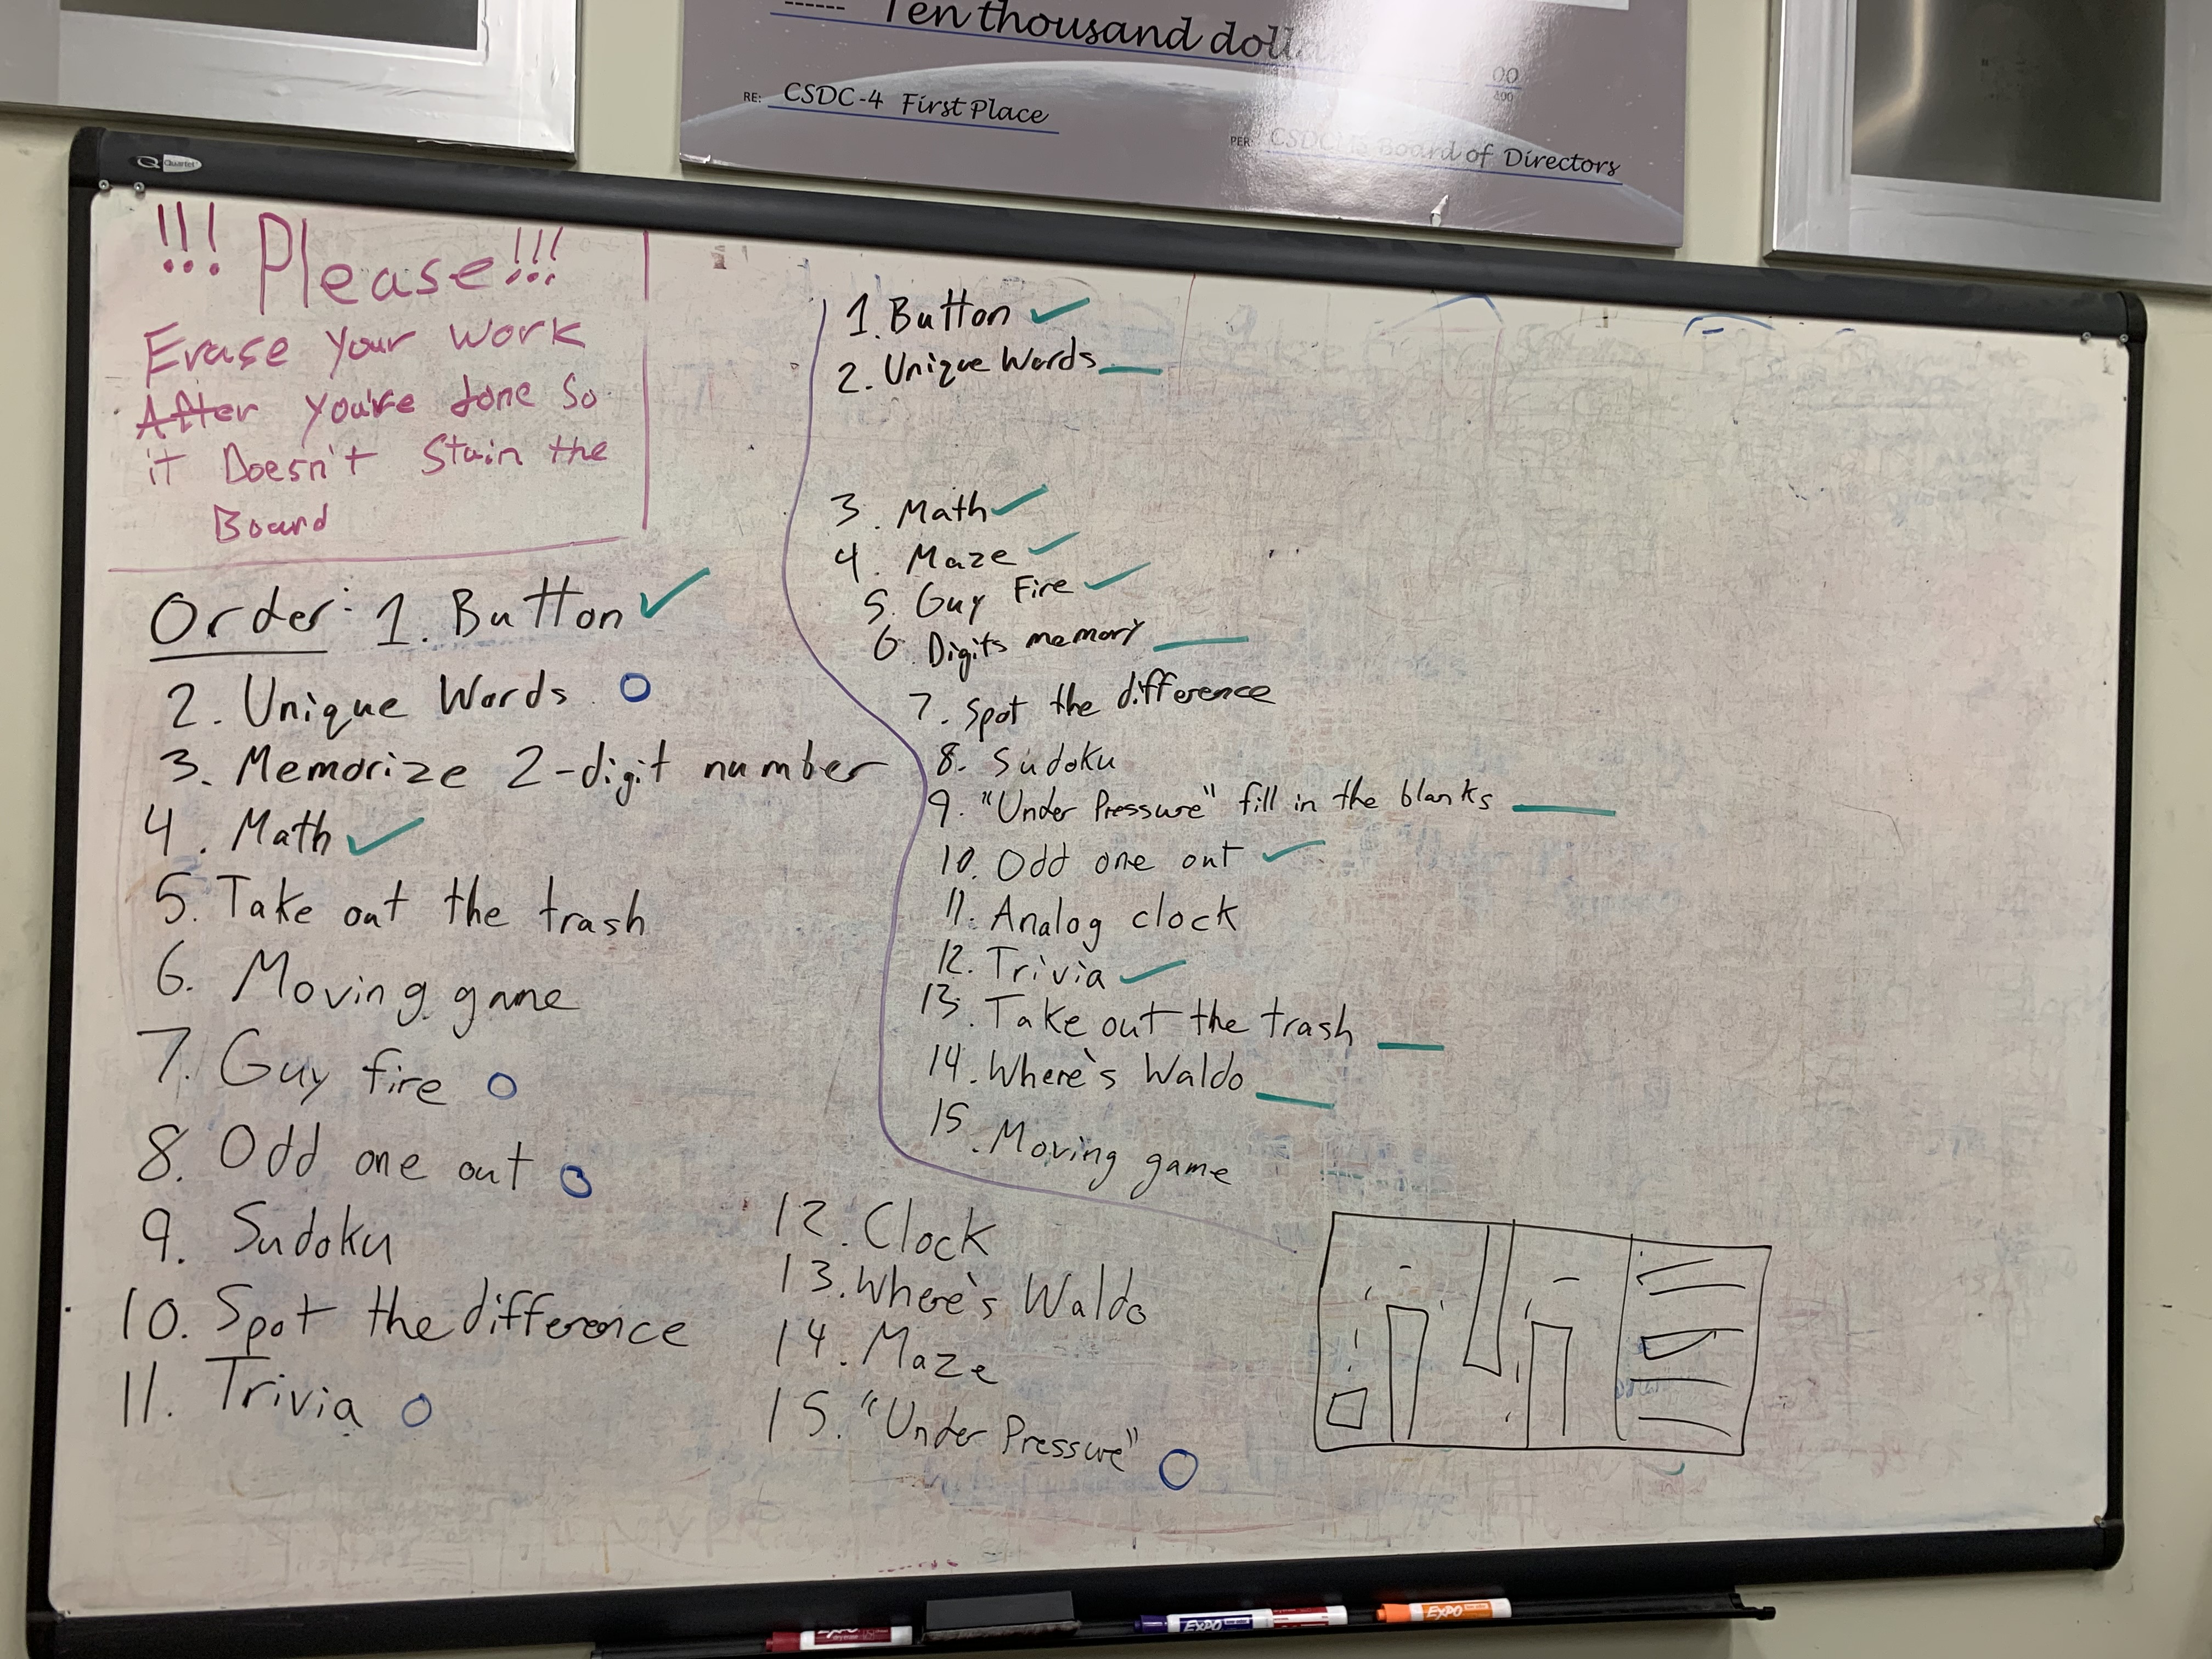 Ten thousand doll
00
100
RE: CSDC-4 First Place
PER: CSDC Board of Directors
Quartet
!!! Please!!!
Erase your work
After you're done so
it Doesn't Stain the
Board
Order: 1. Button ✓
2. Unique Words
3. Memorize 2-digit number
4. Math ✓
5. Take out the trash
6. Moving game
7. Guy fire
8. Odd one out
9. Sudoku
10. Spot the difference
11. Trivia
12. Clock
13. Where's Waldo
14. Maze
15. "Under Pressure"
1. Button ✓
2. Unique Words
3. Math ✓
4. Maze ✓
5. Guy Fire ✓
6. Digits memory
7. Spot the difference
8. Sudoku
9. "Under Pressure" fill in the blanks
10. Odd one out ✓
11. Analog clock
12. Trivia ✓
13. Take out the trash
14. Where's Waldo
15. Moving game
EXPO
EXPO
EXPO